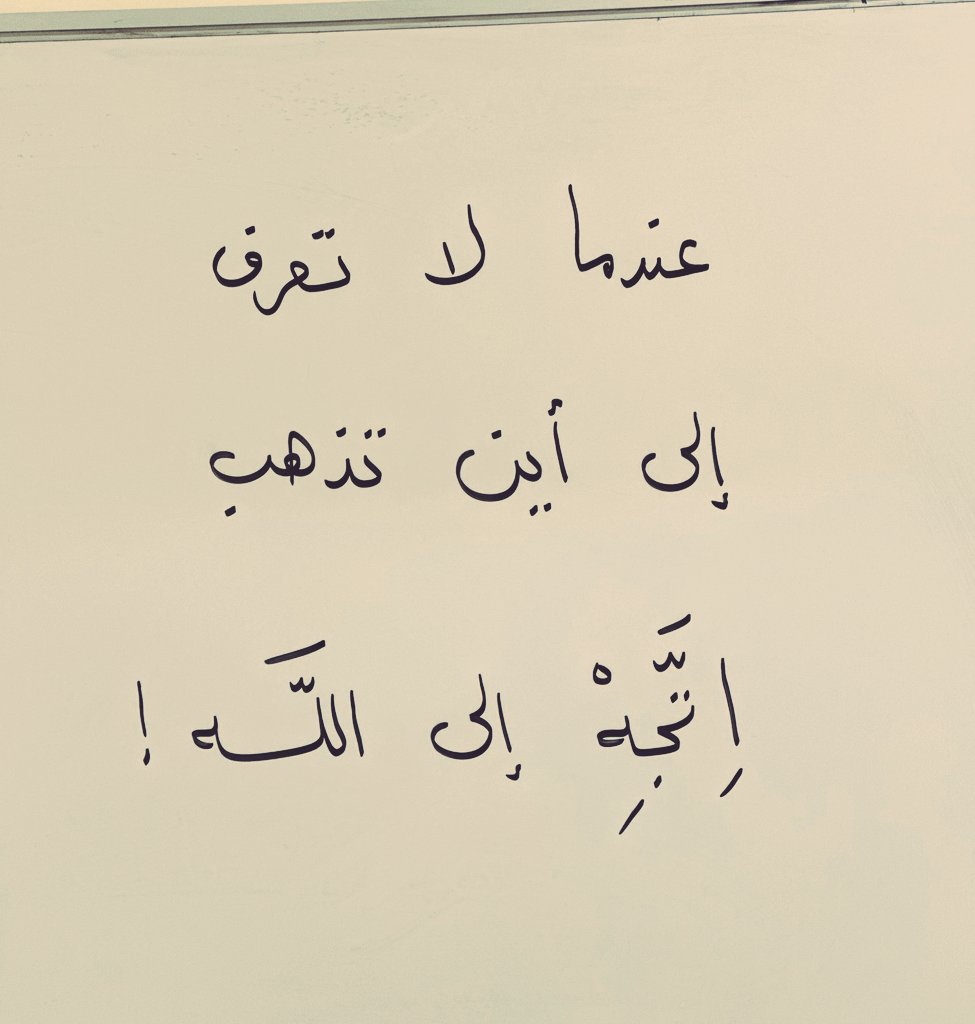 عندما لا تعرف
إلى أين تذهب
اِتَّجِهْ إلى اللَّـه !